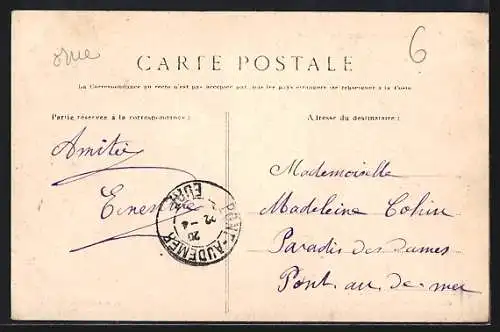 orne
6
CARTE POSTALE
La Correspondance au recto n'est pas acceptée par tous les pays étrangers (se renseigner à la Poste)
Partie réservée à la correspondance :
Adresse du destinataire :
Amitié
Mademoiselle
Madeleine Cohin
Paradis des dames
Pont au de mer
PONT-AUDEMER
EURE